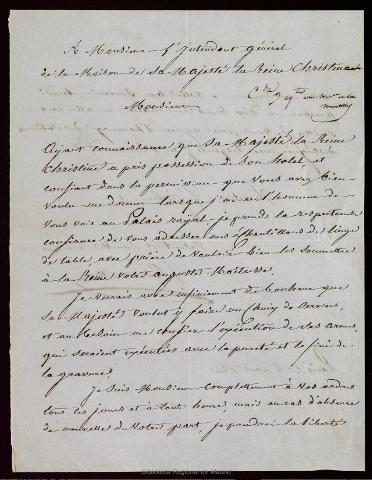 A Monsieur l'Intendant général
de la Maison de sa Majesté la Reine Christine
Monsieur
Ayant connaissance que sa Majesté la Reine
Christine a pris possession de son hotel, et
confiant dans la permission que vous avez bien
voulu me donner lorsque j'ai eu l'honneur de
vous voir au Palais royal, je prends la respectueuse
confiance de vous adresser mes échantillons de linge
de table, avec prière de vouloir bien les soumettre
à la Reine votre auguste Maitresse.
Je verrais avec infiniment de bonheur que
Sa Majesté voulut y faire un choix de services,
et au besoin me confier l'exécution de ses armes,
qui seraient exécutées avec la pureté et le fini de
la gravure.
Je suis Monsieur complettement à vos ordres
tous les jours et à toute heure, mais en cas d'absence
de nouvelle de votre part, je prendrai la liberté
Biblioteca Regional de Madrid